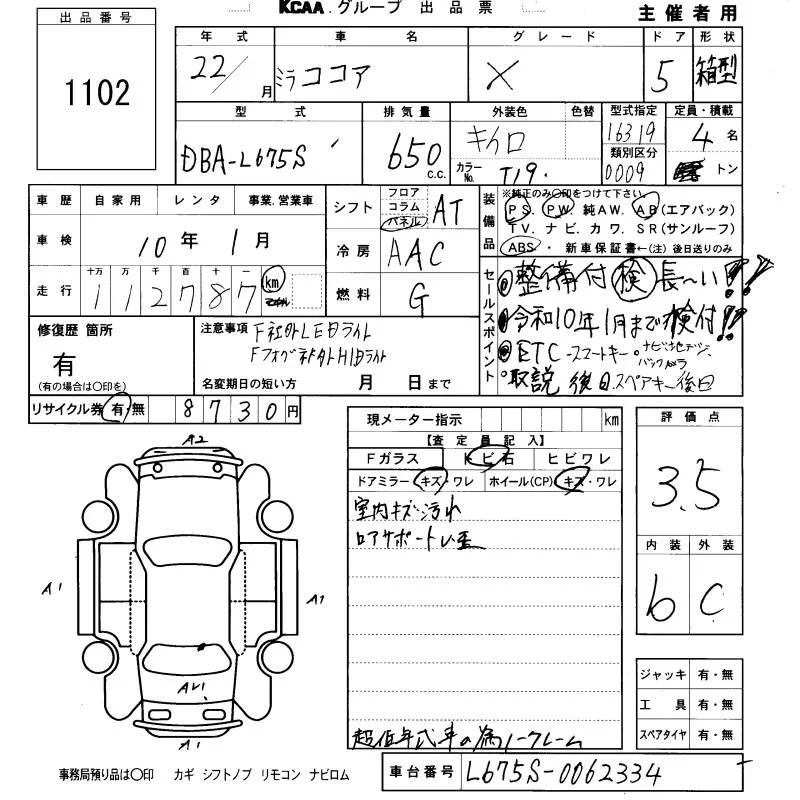 出品番号
1102
KCAA.グループ 出品票
主催者用
年式 車名 グレード ドア 形状
22/ 月 ミラココア X 5 箱型
型式 排気量 外装色 色替 型式指定 定員・積載
DBA-L675S 650 c.c. キイロ 16319 4名
カラーNo. T19 類別区分 0009 トン
車歴 自家用 レンタ 事業.営業車
車検 10年 1月
走行 十万 万 千 百 十 一
112787 km
シフト フロア コラム パネル AT
冷房 AAC
燃料 G
装備品
※純正のみ○印をつけて下さい
PS. PW. 純AW. AB(エアバック)
TV. ナビ. カワ. SR(サンルーフ)
ABS・新車保証書←(注) 後日送りのみ
セールスポイント
整備付 検 長〜い!!
令和10年1月まで検付!!
ETC-スマートキー・ナビ地デジ・
バックカメラ
取説 後日.スペアキー後日
修復歴 箇所
有
(有の場合は○印を)
注意事項 F社外LEDライト
Fフォグ社外HIDライト
名変期日の短い方 月 日まで
リサイクル券 有・無 8730円
現メーター指示 km
【査定員記入】
Fガラス トビ石 ヒビワレ
ドアミラー キズ・ワレ ホイール(CP) キズ・ワレ
室内キズ・汚れ
ロアサポート歪
超低年式車の為ノークレーム
評価点
3.5
内装 外装
b C
ジャッキ 有・無
工具 有・無
スペアタイヤ 有・無
A2
A1
A1
AU1
A1
事務局預り品は○印 カギ シフトノブ リモコン ナビロム
車台番号 L675S-0062334